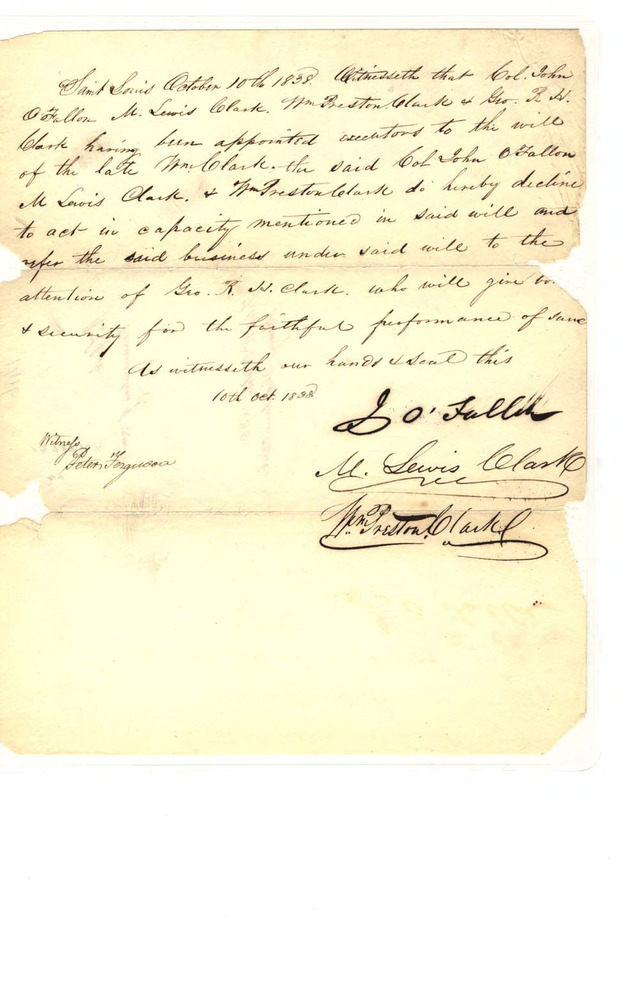 Saint Louis October 10th 1838. Witnesseth that Col. John
O'Fallon M. Lewis Clark. Wm Preston Clark & Geo. R. H.
Clark having been appointed executors to the will
of the late Wm Clark. the said Col John O'Fallon
M Lewis Clark. & Wm Preston Clark do hereby decline
to act in capacity mentioned in said will and
refer the said business under said will to the
attention of Geo. R. H. Clark. who will give
& security for the faithful performance of same
As witnesseth our hands & seal this
10th Oct. 1838
J O'Fallon
Witness
Peter Ferguson
M. Lewis Clark
Wm Preston Clark